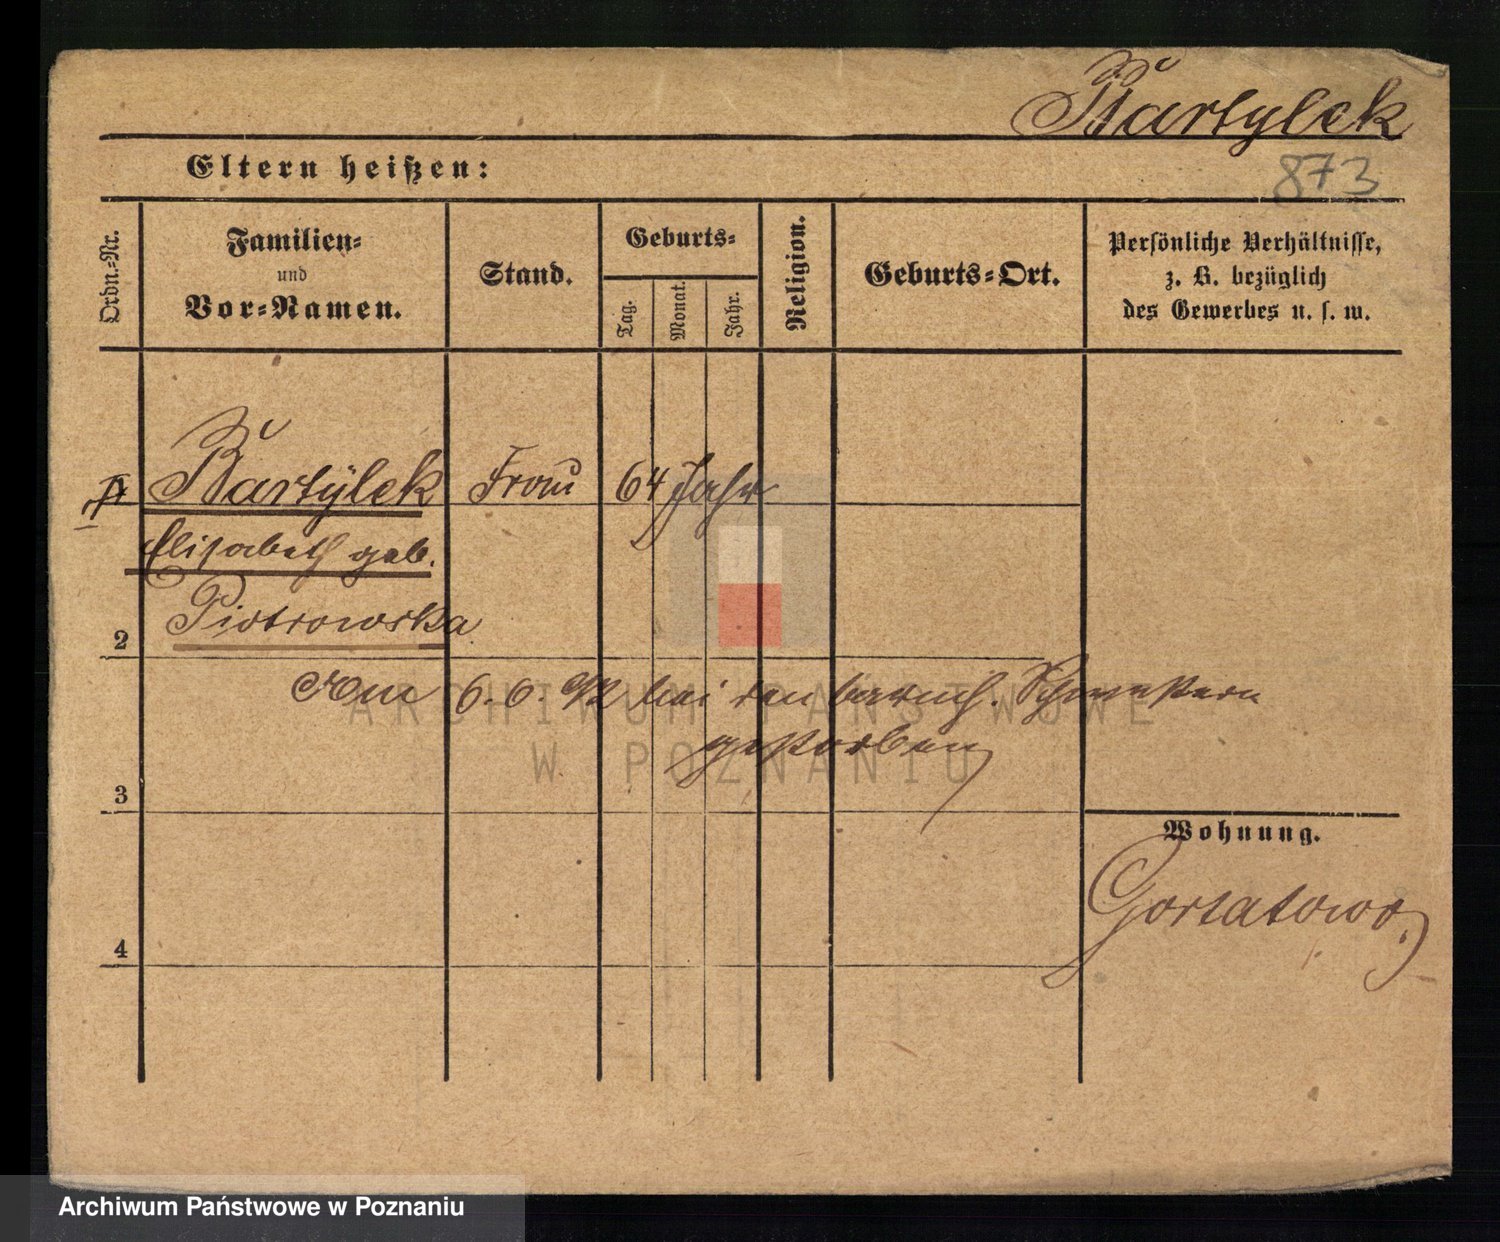 Bartylek
Eltern heißen:
873
Ordn.-Nr.
Familien-
und
Vor-Namen.
Stand.
Geburts-
Tag.
Monat.
Jahr.
Religion.
Geburts-Ort.
Persönliche Verhältnisse,
z. B. bezüglich
des Gewerbes u. s. w.
Bartÿlek Frau 64 Jahr
Elisabeth geb.
Piotrowska
2
Am 6. 6. 92 bei den barmh. Schwestern
gestorben
3
Wohnung.
Gortatowo
4
ARCHIWUM PAŃSTWOWE
W POZNANIU
Archiwum Państwowe w Poznaniu